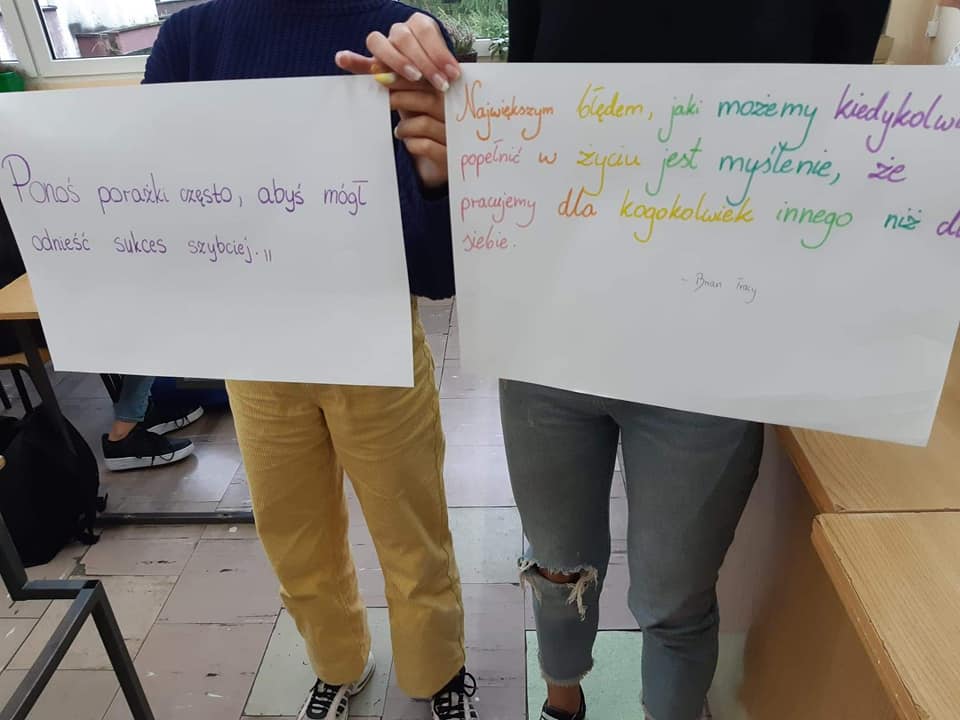 Ponoś porażki często, abyś mógł
odnieść sukces szybciej.,,
Największym błędem, jaki możemy
popełnić w życiu jest myślenie, że
pracujemy dla kogokolwiek innego niż
siebie.
- Brian Tracy